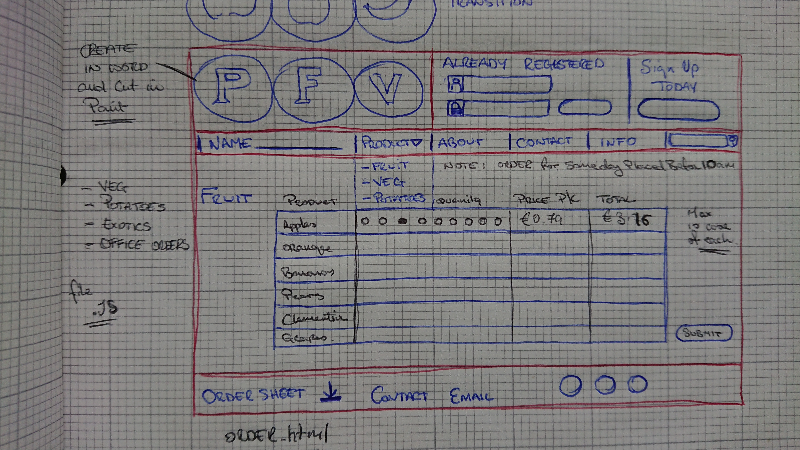 TRANSITION
CREATE
IN WORD
and Cut in
Paint
P F V
ALREADY REGISTERED
Sign Up
TODAY
NAME
PRODUCT
ABOUT
CONTACT
INFO
- FRUIT
- VEG
- POTATOES
NOTE: ORDER for Same day Placed Before 10am
- VEG
- POTATOES
- EXOTICS
- OFFICE ORDERS
file
.JS
FRUIT
PRODUCT
Quantity
PRICE PK
TOTAL
Apples
€0.79
€3.16
Orange
Bananas
Pears
Clementine
Grapes
Max
10 case
of each
SUBMIT
ORDER SHEET
CONTACT
EMAIL
ORDER.html